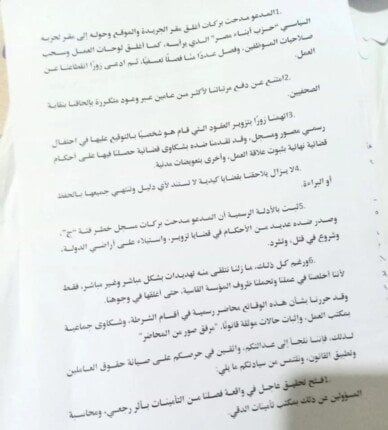 1.المدعو مدحت بركات أغلق مقر الجريدة والموقع وحوله إلى مقر لحزبه
السياسي "حزب أبناء مصر" الذي يرأسه، كما أغلق لوحات العمل وسحب
صلاحيات الموظفين، وفصل عددًا منا فصلًا تعسفيًا، ثم ادعى زورًا انقطاعنا عن
العمل.
2.امتنع عن دفع مرتباتنا لأكثر من عامين عبر وعود متكررة بإلحاقنا بنقابة
الصحفيين.
3.اتهمنا زورًا بتزوير العقود التي قام هو شخصيًا بالتوقيع عليها في احتفال
رسمي مصور ومسجل، وقد تقدمنا ضده بشكاوى قضائية حصلنا فيها على أحكام
قضائية نهائية بثبوت علاقة العمل، وأخرى بتعويضات مدنية.
4.لا يزال يلاحقنا بقضايا كيدية لا تستند لأي دليل وتنتهي جميعها بالحفظ
أو البراءة.
5.ثبت بالأدلة الرسمية أن المدعو مدحت بركات مسجل خطر فئة "ج"،
وصدر ضده عديد من الأحكام في قضايا تزوير، واستيلاء على أراضي الدولة،
وشروع في قتل، وتشرد.
6.ورغم كل ذلك، ما زلنا نتلقى منه تهديدات بشكل مباشر وغير مباشر، فقط
لأننا أخلصنا في عملنا وتحملنا ظروف المؤسسة القاسية، حتى أغلقها في وجوهنا.
وقد حررنا بشأن هذه الوقائع محاضر رسمية في أقسام الشرطة، وشكاوى جماعية
بمكتب العمل، وإثبات حالات موثقة قانونًا. "يرفق صور من المحاضر"
لذلك، فإننا نلجأ إلى عدالتكم، واثقين في حرصكم على صيانة حقوق العاملين
وتطبيق القانون، ونلتمس من سيادتكم ما يلي:
1.فتح تحقيق عاجل في واقعة فصلنا من التأمينات بأثر رجعي، ومحاسبة
المسؤولين عن ذلك بمكتب تأمينات الدقي.